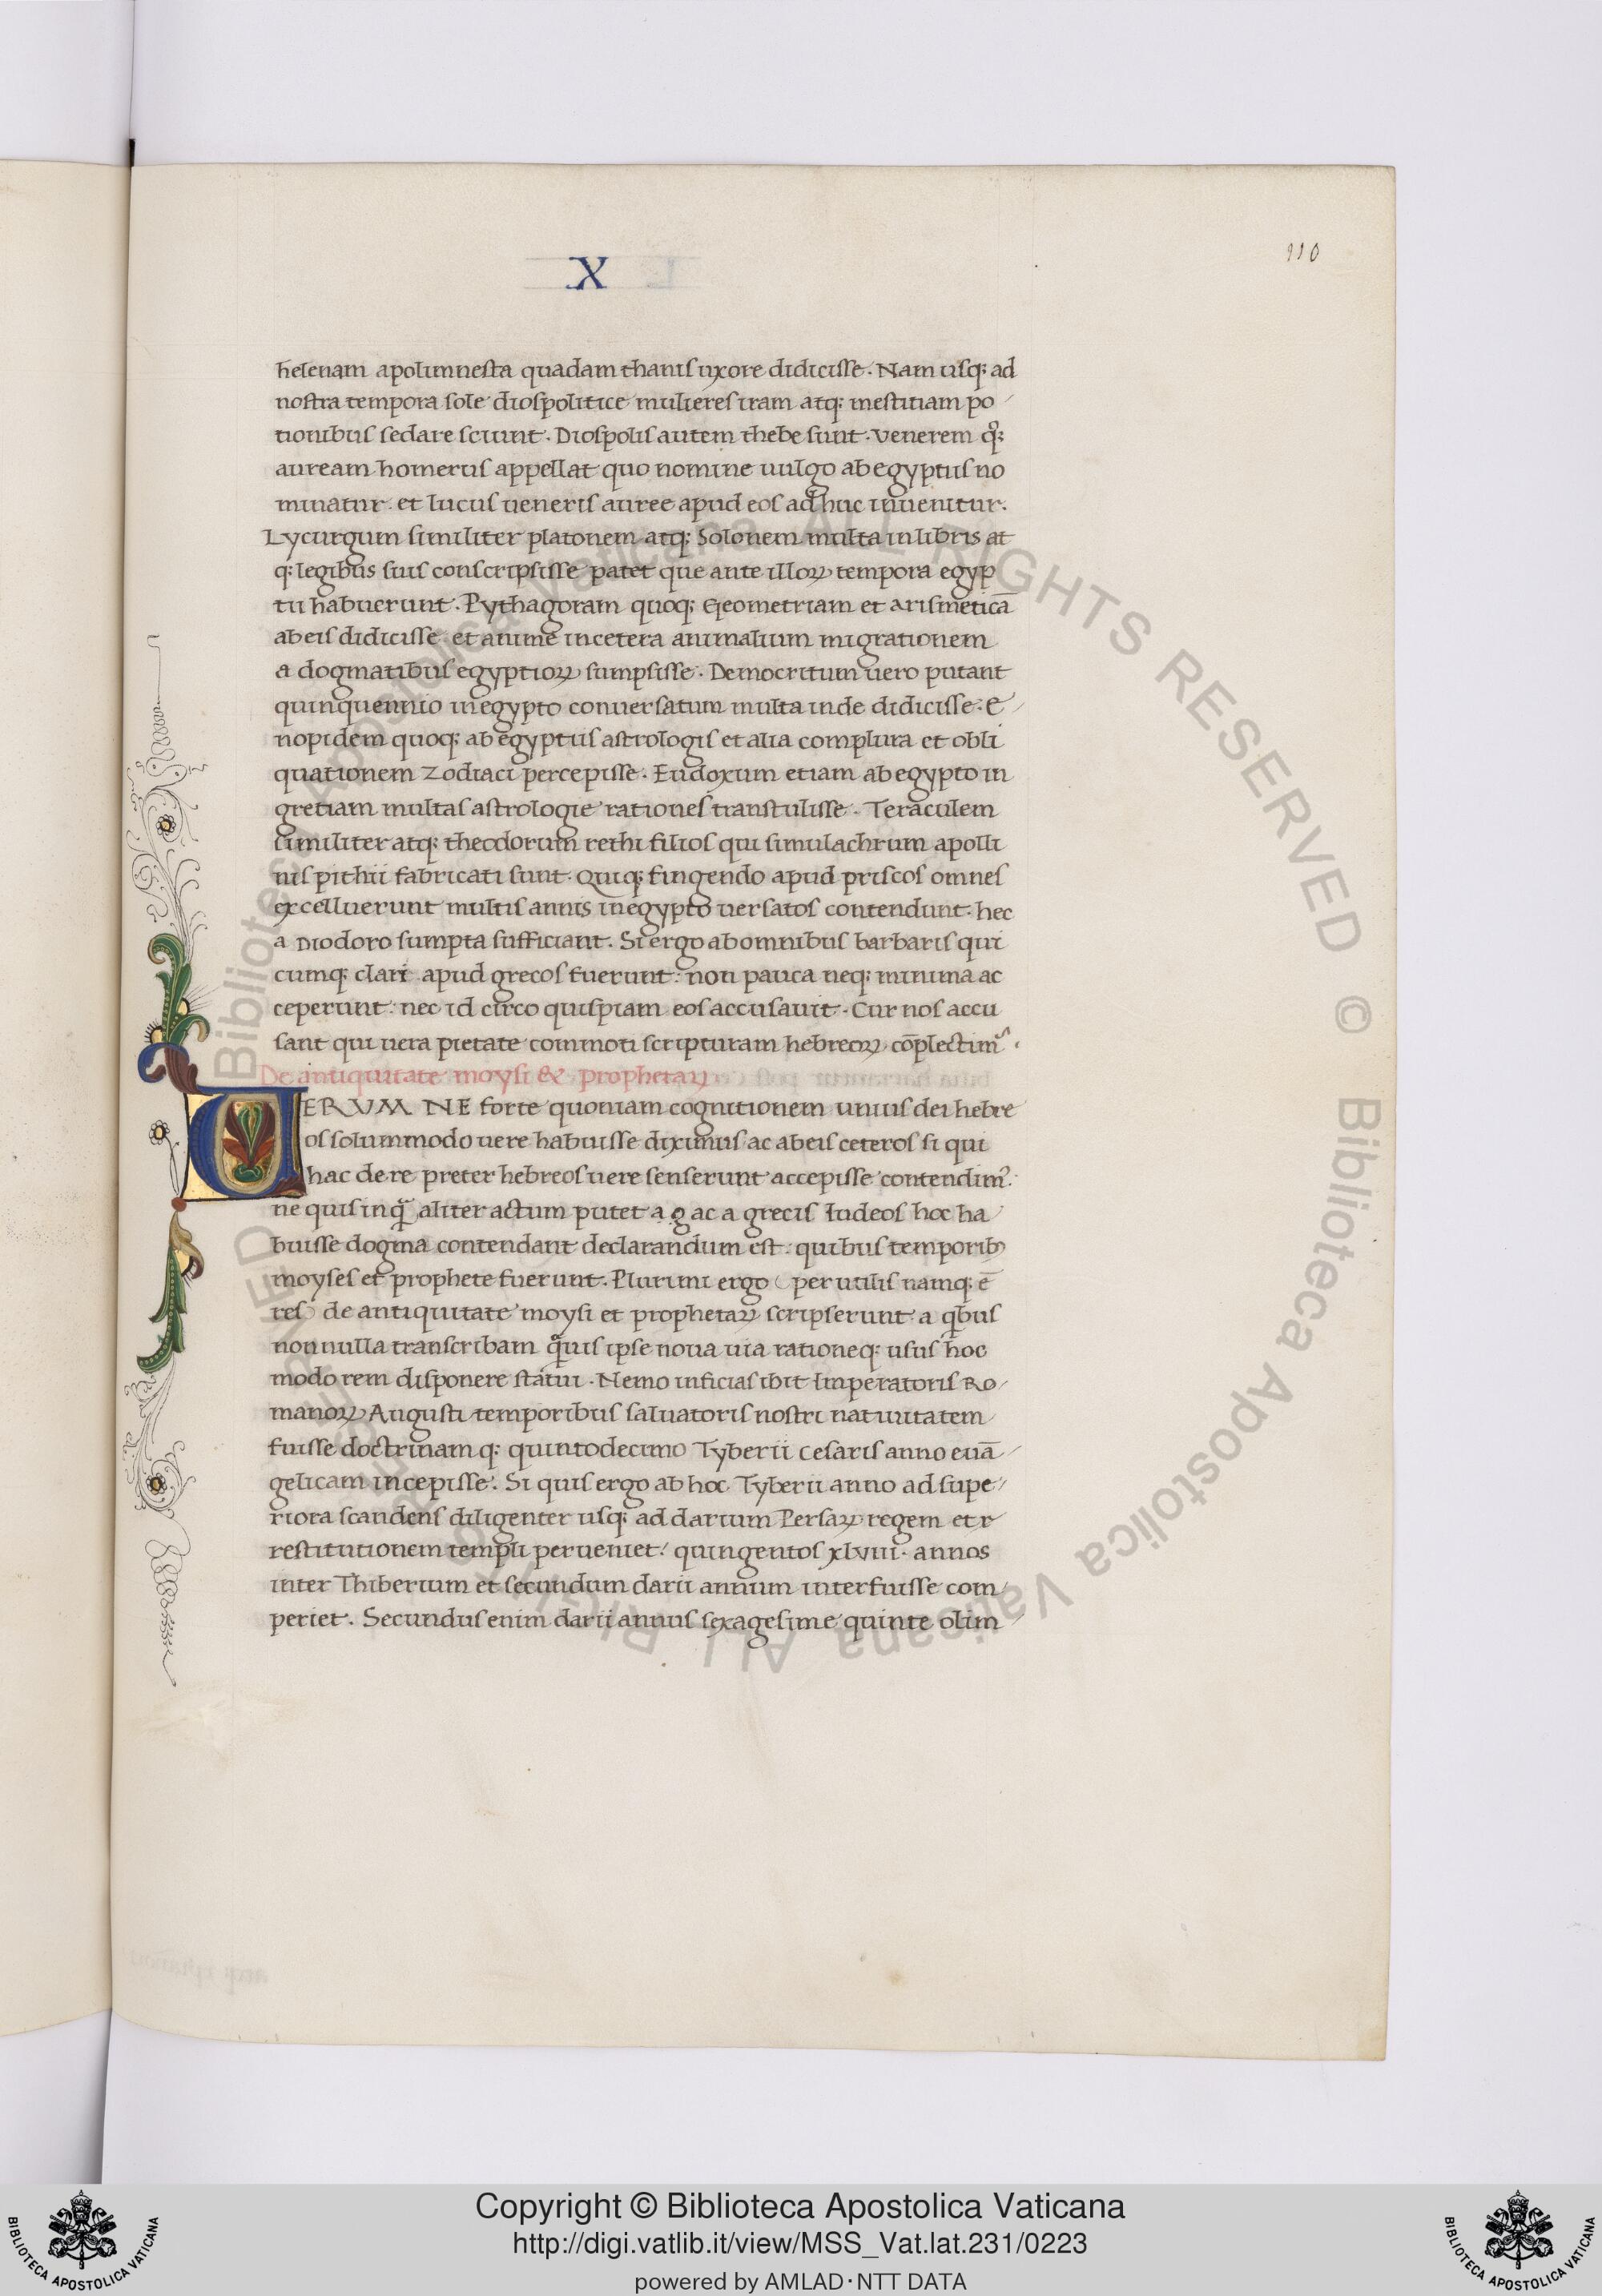 110
X
helenam apolimnesta quadam thanis uxore didicisse. Nam usq; ad
nostra tempora sole diospolitice mulieres iram atq; mestitiam po
tionibus sedare sciunt. Diospolis autem thebe sunt. venerem q̊;
auream homerus appellat quo nomine uulgo ab egyptiis no
minatur. et lucus ueneris auree apud eos ad huc inuenitur.
Lycurgum similiter platonem atq; Solonem multa in libris at
q; legibus suis conscripsisse patet que ante illoꝝ tempora egyp
tii habuerunt. Pythagoram quoq; Geometriam et arismeticā
ab eis didicisse. et anime in cetera animalium migrationem
a dogmatibus egyptioꝝ sumpsisse. Democritum uero putant
quinquennio in egypto conuersatum multa inde didicisse. E
nopidem quoq; ab egyptiis astrologis et alia complura et obli
quationem zodiaci percepisse. Eudoxum etiam ab egypto in
gretiam multas astrologie rationes transtulisse. Teraculem
similiter atq; theodorum rethi filios qui simulachrum apolli
nis pithii fabricati sunt. Quiq; fingendo apud priscos omnes
excelluerunt multis annis in egypto uersatos contendunt. hec
a Diodoro sumpta sufficiant. Si ergo ab omnibus barbaris qui
cumq; clari apud grecos fuerunt: non pauca neq; minima ac
ceperunt: nec id circo quispiam eos accusauit. Cur nos accu
sant qui uera pietate commoti scripturam hebreoꝝ cōplectimꝰ.
De antiquitate moysi & prophetaꝝ
UERVM NE forte quoniam cognitionem unius dei hebre
os solummodo uere habuisse diximus ac ab eis ceteros si qui
hac de re preter hebreos uere senserunt accepisse contendimꝰ.
ne quis inqͣ aliter actum putet a.g. ac a grecis Iudeos hoc ha
buisse dogma contendant declarandum est. quibus temporibꝰ
moyses et prophete fuerunt. Plurimi ergo (per utilis namq; ē
res) de antiquitate moysi et prophetaꝝ scripserunt. a qͥbus
non nulla transcribam qͣuis ipse noua uia rationeq; usus hoc
modo rem disponere statui. Nemo inficias ibit Imperatoris Ro
manoꝝ Augusti temporibus saluatoris nostri natiuitatem
fuisse doctrinamq; quintodecimo Tyberii cesaris anno euā
gelicam incepisse. Si quis ergo ab hoc Tyberii anno ad supe
riora scandens diligenter usq; ad darium Persaꝝ regem et r
restitutionem templi perueniet. quingentos xlviii. annos
inter Thiberium et secundum darii annum interfuisse com
periet. Secundus enim darii annus sexagesime quinte olim
Biblioteca Apostolica Vaticana ALL RIGHTS RESERVED © Biblioteca Apostolica Vaticana ALL RIGHTS RESERVED ©
Copyright © Biblioteca Apostolica Vaticana
http://digi.vatlib.it/view/MSS_Vat.lat.231/0223
powered by AMLAD·NTT DATA
BIBLIOTECA APOSTOLICA VATICANA
BIBLIOTECA APOSTOLICA VATICANA